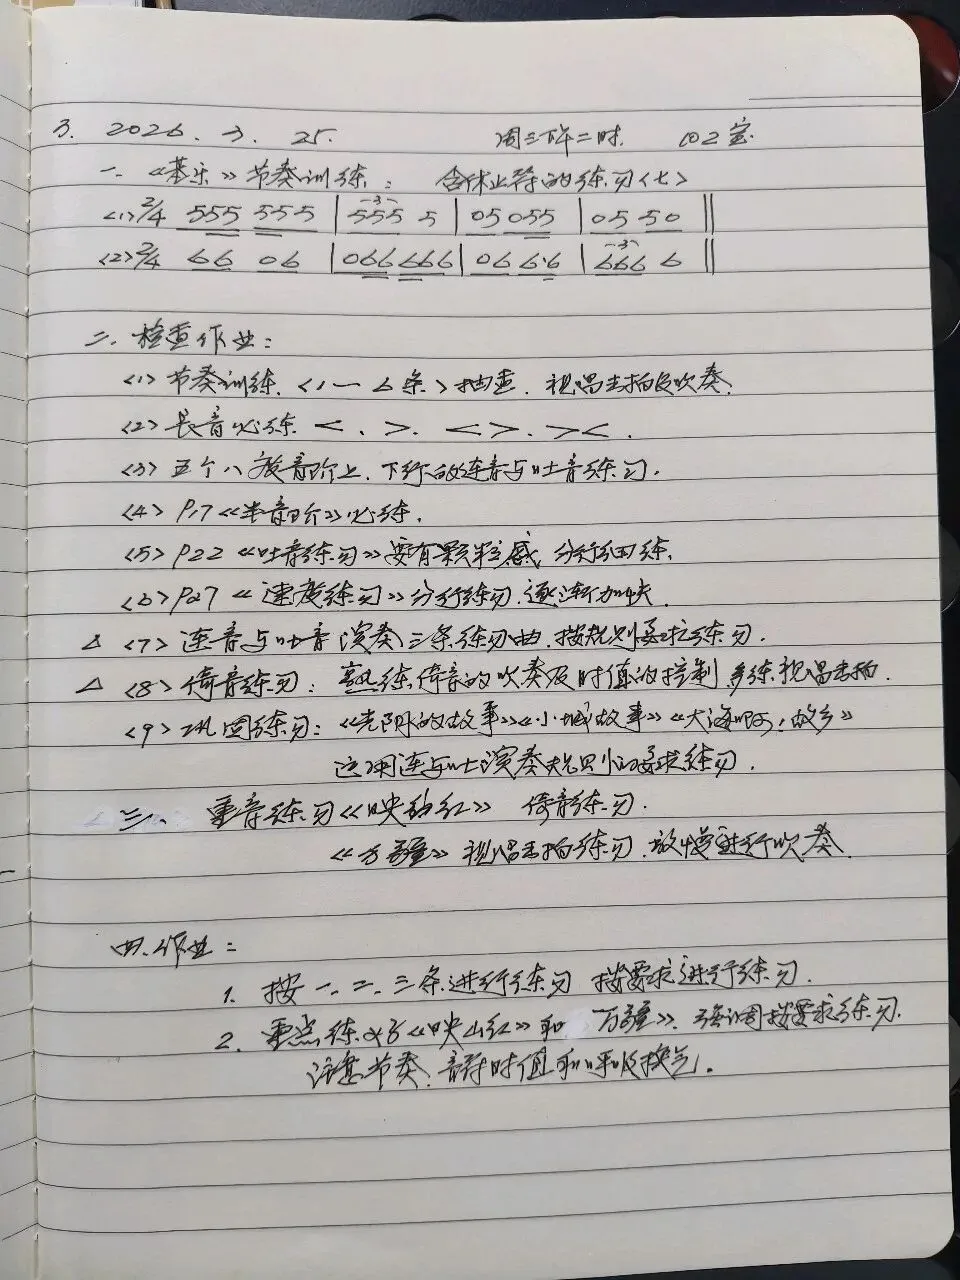 3. 2026. 3. 25. 周三下午二时. 102室.
一. 《基乐》节奏训练: 含休止符的练习<七>
<1> 2/4 555 555 | -3- 555 5 | 05 055 | 05 50 ||
<2> 2/4 66 06 | 066 666 | 06 6·6 | -3- 666 6 ||
二. 检查作业:
<1> 节奏训练. <1一6条>抽查. 视唱击拍及吹奏.
<2> 长音必练. < . > . < > . > < .
<3> 五个八度音阶上. 下行的连音与吐音练习.
<4> P.17《半音阶》必练.
<5> P22《吐音练习》要有颗粒感, 分行细练.
<6> P27《速度练习》分行练习. 逐渐加快.
△ <7> 连音与吐音演奏三条练习曲. 按规划要求练习.
△ <8> 倚音练习: 熟练倚音的吹奏及时值的控制, 多练视唱击拍.
<9> 巩固练习: 《光阴的故事》《小城故事》《大海啊, 故乡》
运用连与吐演奏规则的要求练习.
三. 重音练习《映山红》 倚音练习.
《万疆》视唱击拍练习. 放慢进行吹奏.
四. 作业:
1. 按一. 二. 三条进行练习 按要求进行练习.
2. 重点练好《映山红》和 万疆》. 强调按要求练习.
注意节奏. 音符时值和呼吸换气.